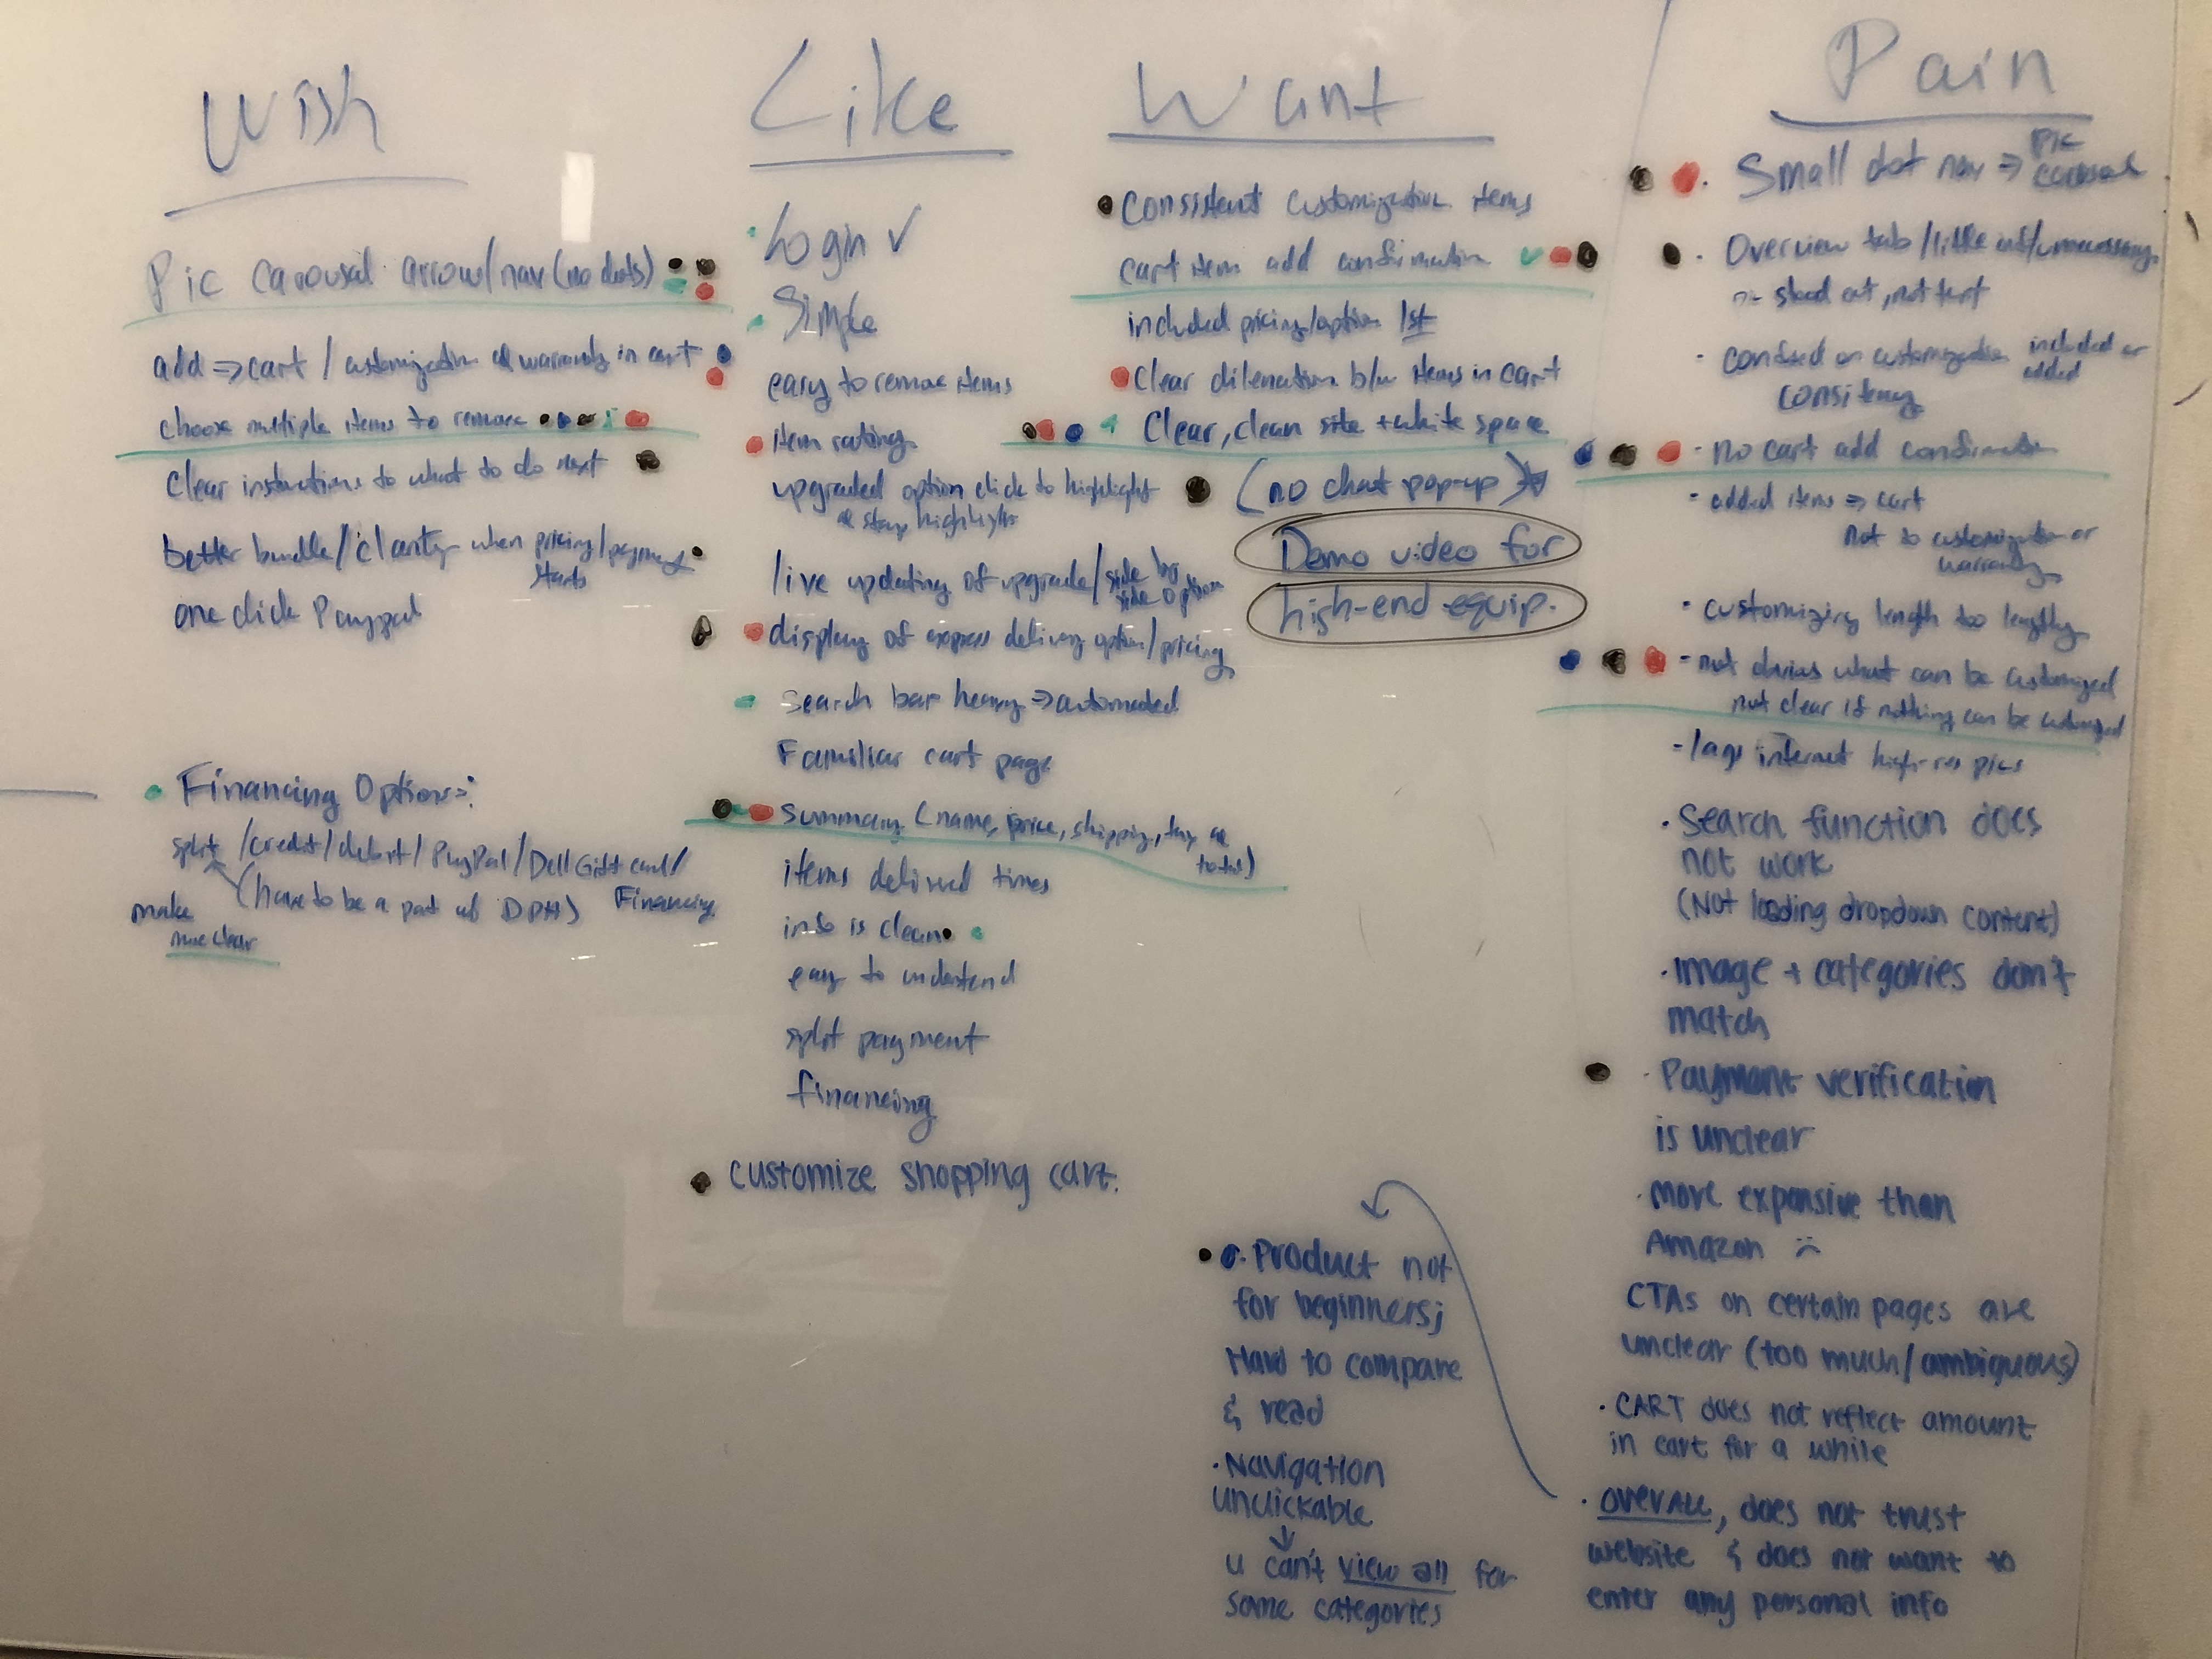 Wish
Pic carousel arrow/nav (no dots)
add ⇒ cart / customization & warranty in cart
choose multiple items to remove
clear instructions to what to do next
better bundle/clarity when pricing/payment
starts
one click Paypal
Financing Options:
split /credit/debit/PayPal/Dell Gift card/
(have to be a part of DPA) Financing
make
more clear
Like
Login ✓
Simple
easy to remove items
item rating
upgraded option click to highlight
& stay highlight
live updating of upgrade/side by
side option
display of express delivery option/pricing
Search bar heavy ⇒ automated
Familiar cart page
summary (name, price, shipping, tax &
total)
items delivered times
info is clean
easy to understand
split payment
financing
customize shopping cart.
Want
Consistent customization items
cart item add confirmation ✓
included pricing/option 1st
Clear dilenation b/w items in cart
Clear, clean site + white space
(no chat pop-up)
Demo video for
high-end equip.
Pain
Small dot nav ⇒ pic
carousel
Overview tab/little inf/unnecessary
stand out, not text
confused on customization included or
added
consitency
no cart add confirmation
added items ⇒ cart
not to customization or
warranty
customizing length too lengthy
not obvious what can be customized
not clear if nothing can be customized
lags internet high-res pics
Search function does
not work
(Not loading dropdown content)
Image + categories don't
match
Payment verification
is unclear
more expensive than
Amazon :(
CTAs on certain pages are
unclear (too much/ambiguous)
CART does not reflect amount
in cart for a while
OVERALL, does not trust
website & does not want to
enter any personal info
Product not
for beginners;
Hard to compare
& read
Navigation
unclickable
↓
u can't view all for
some categories